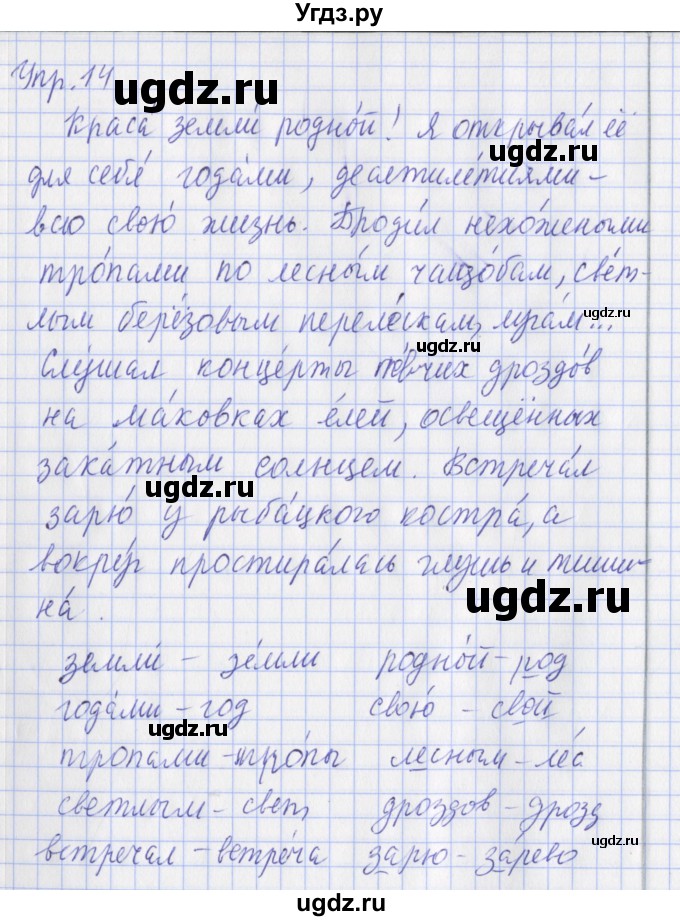 Угдз.ру
Упр. 14
ugdz.ru
Краса́ земли́ родно́й! Я открыва́л её
ugdz.ru
для себя́ года́ми, десятиле́тиями –
всю свою́ жизнь. Броди́л нехо́жеными
тро́пами по лесны́м чащо́бам, све́т-
лым берёзовым переле́скам, луга́м...
ugdz.ru
ugdz.ru
Слу́шал конце́рты пе́вчих дроздо́в
на ма́ковках е́лей, освещённых
зака́тным солнцем. Встреча́л
ugdz.ru
зарю́ у рыба́цкого костра́, а
вокру́г простира́лась глушь и тиши-
ugdz.ru
на́.
земли́ – зе́мли родно́й – род
года́ми – год свою́ – свой
ugdz.ru
тропами – тро́пы лесным – лес
светлым – свет дроздов – дрозд
встречал – встре́ча зарю – за́рево
ugdz.ru
ugdz.ru